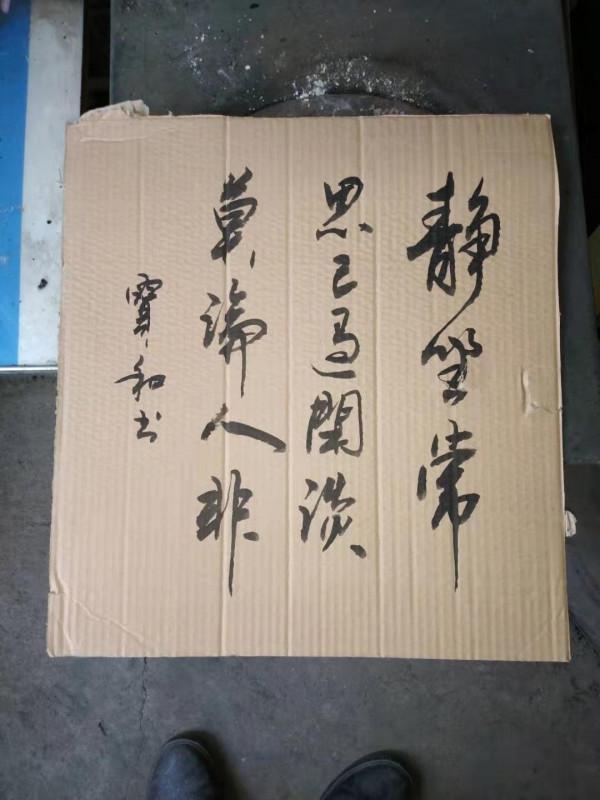 靜坐常
思己過閑談
莫論人非
寶和书